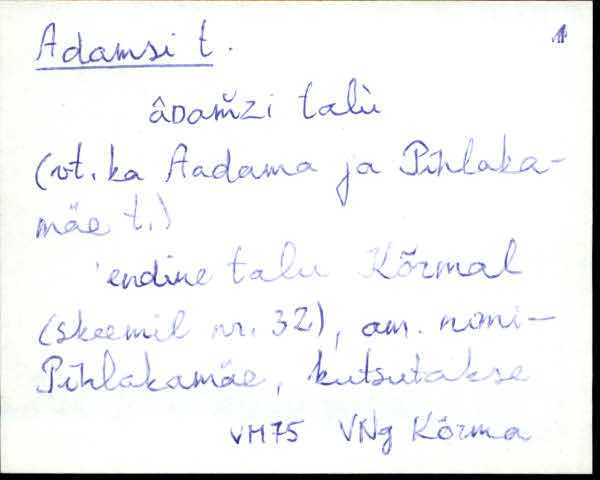 Adamsi t. 1
âᴅam̆zi talù
(vt. ka Aadama ja Pihlaka-
mäe t.)
endine talu Kõrmal
(skeemil nr. 32), am. nimi-
Pihlakamäe, kutsutakse
VM75 VNg Kõrma